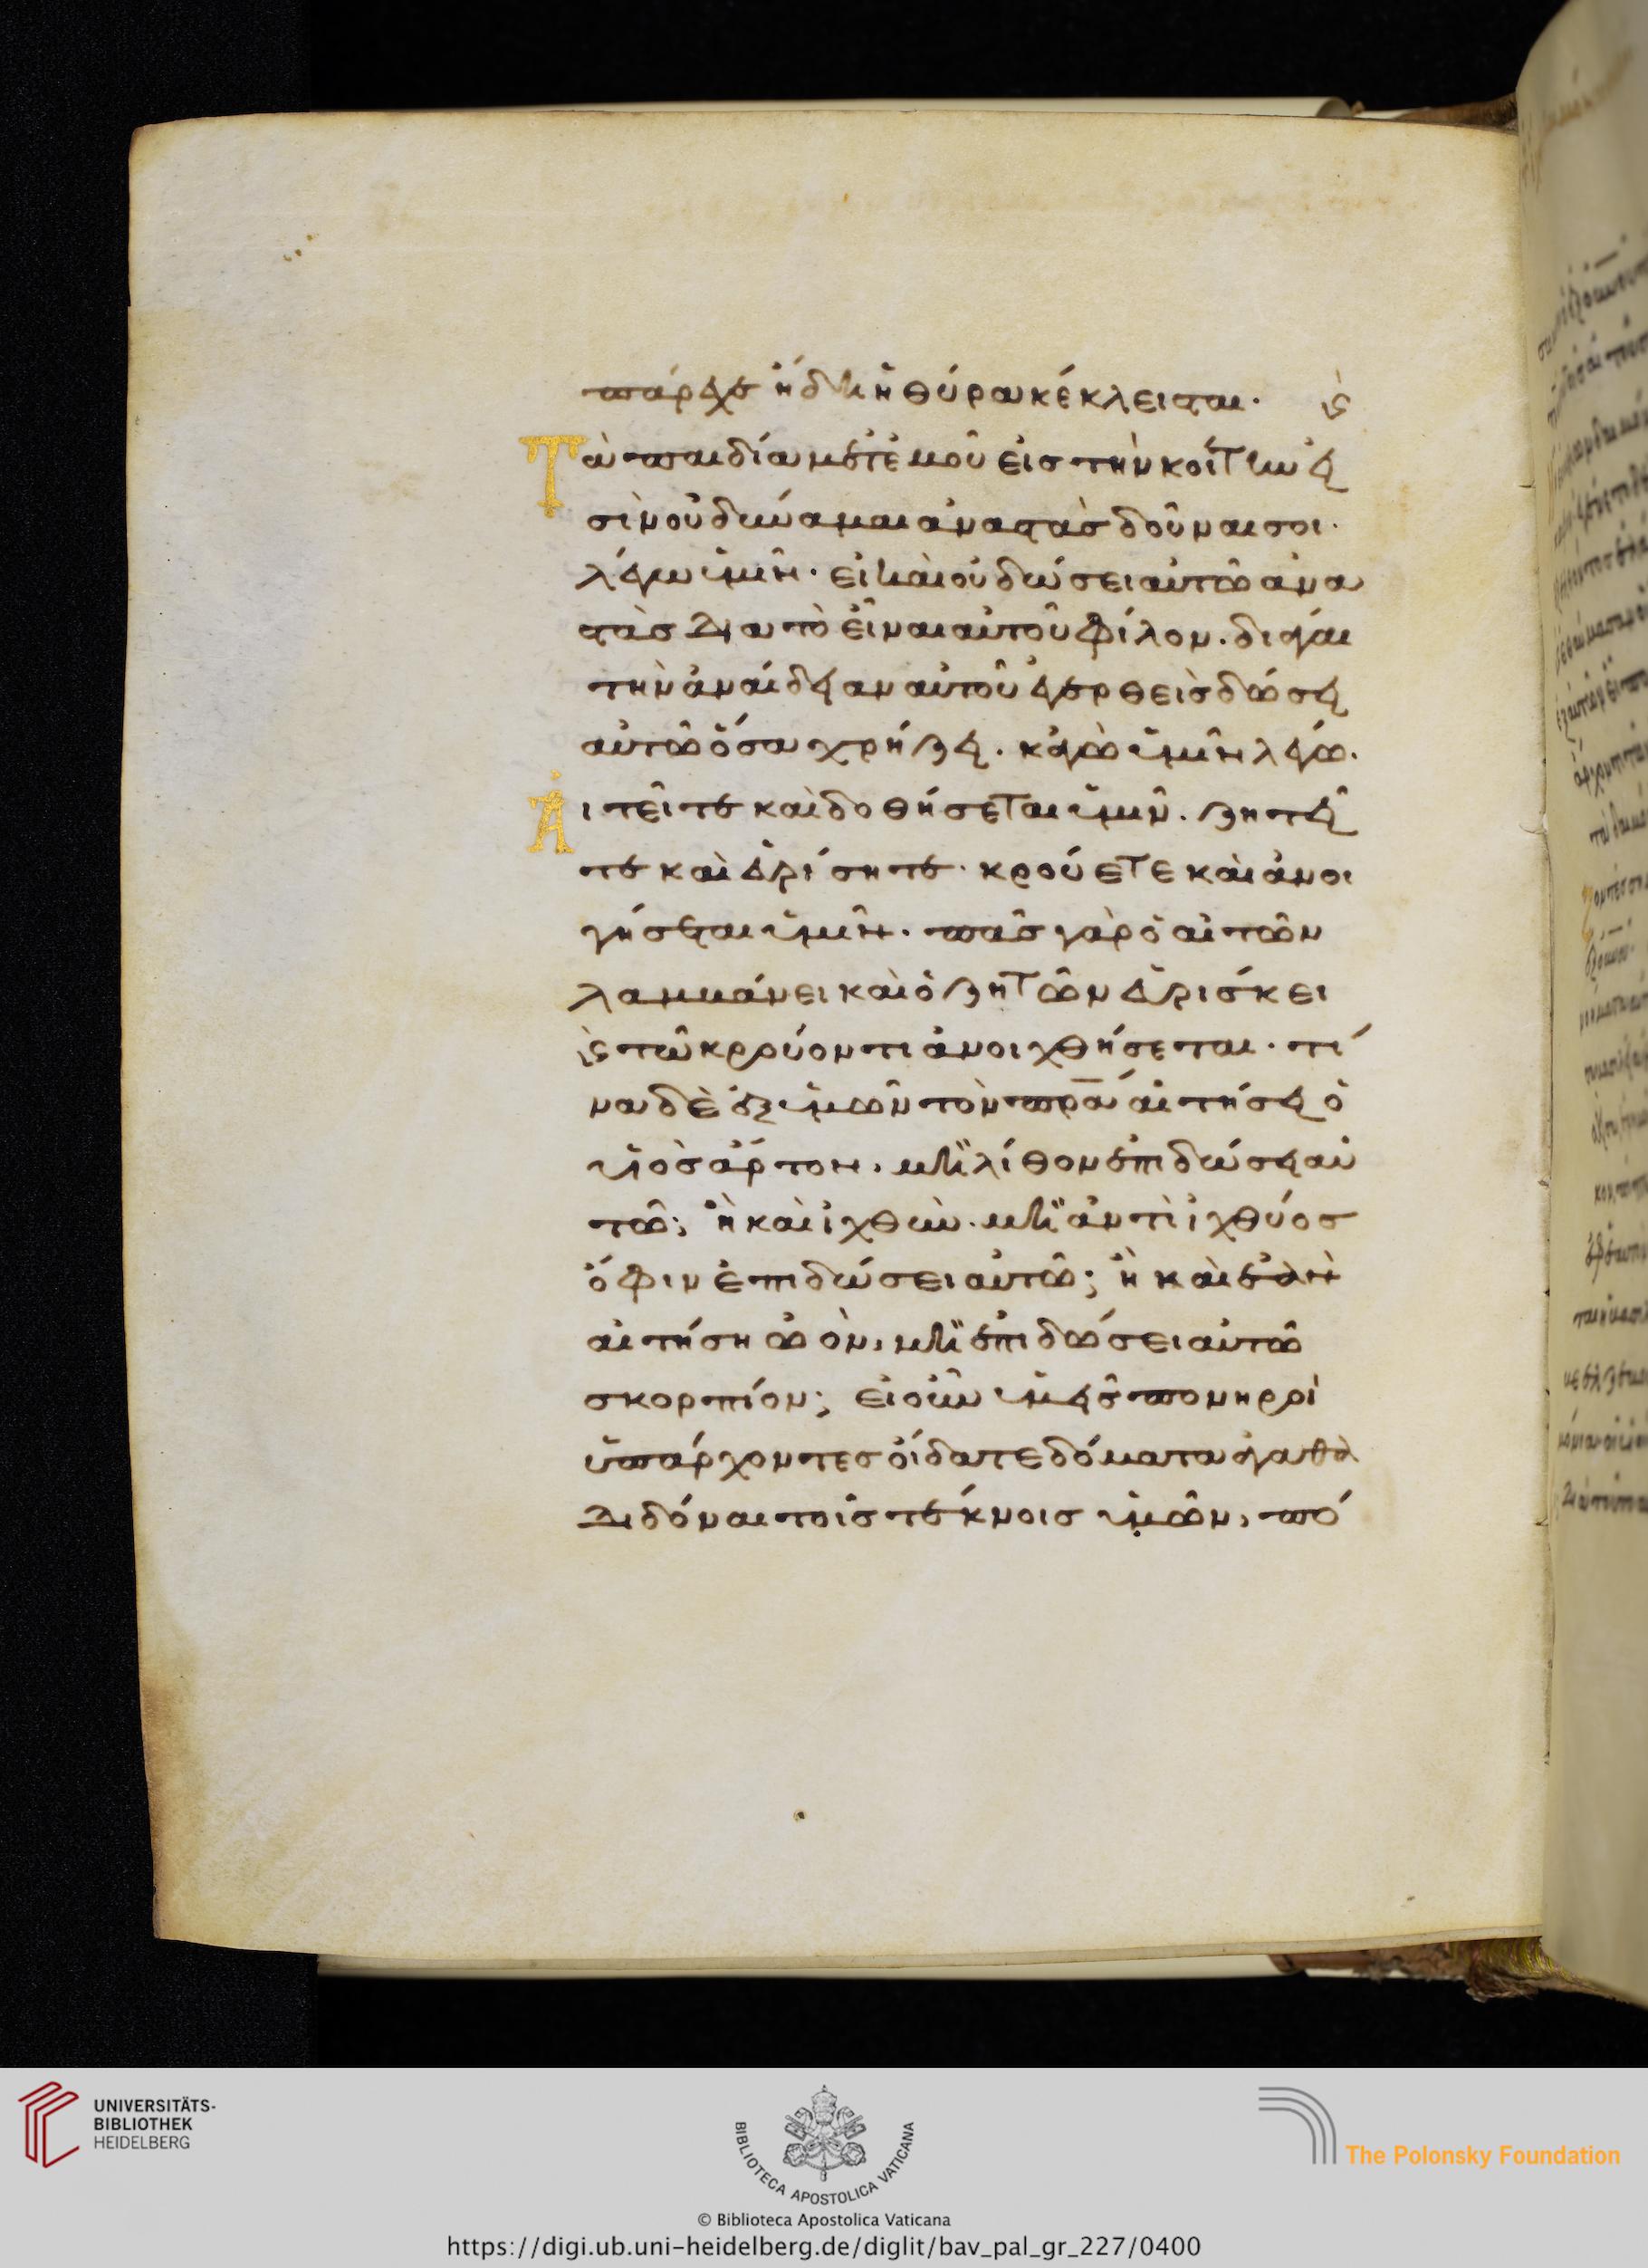 πάρεχε ἤδη ἡ θύρα κέκλεισται· καὶ
Τὰ παιδία μετ ἐμοῦ εἰσ τὴν κοίτην εἰ
σὶν οὐ δύναμαι ἀναστὰσ δοῦναι σοι·
λέγω ὑμῖν· εἰ καὶ οὐ δώσει αὐτῶ ἀνα
στὰσ διὰ τὸ εἶναι αὐτοῦ φίλον· διά γαι
τὴν ἀναίδειαν αὐτοῦ ἐγερθεὶσ δώσει
αὐτῶ ὅσα χρήζει· κἀγὼ ὑμῖν λέγω·
Αἰτεῖτε καὶ δοθήσεται ὑμῖν· ζητεῖ
τε καὶ εὑρίσητε· κρούετε καὶ ἀνοι
γήσεται ὑμῖν· πᾶσ γὰρ ὁ αἰτῶν
λαμβάνει καὶ ὁ ζητῶν εὑρίσκει
καὶ τῶ κρούοντι ἀνοιχθήσεται· τί
να δὲ ἐξ ὑμῶν τὸν πρα αἰτήσει ὁ
υἱὸσ ἄρτον, μὴ λίθον ἐπιδώσει αὐ
τῶ; ἢ καὶ ἰχθὺν· μὴ ἀντὶ ἰχθύοσ
ὄφιν ἐπιδώσει αὐτῶ; ἢ καὶ ἐὰν
αἰτήση ὠὸν, μὴ ἐπιδώσει αὐτῶ
σκορπίον; εἰ οὖν ὑμεῖσ πονηροὶ
ὑπάρχοντεσ οἴδατε δόματα ἀγαθὰ
διδόναι τοῖσ τέκνοισ ὑμῶν, πό
UNIVERSITÄTS-
BIBLIOTHEK
HEIDELBERG
BIBLIOTECA APOSTOLICA VATICANA
The Polonsky Foundation
© Biblioteca Apostolica Vaticana
https://digi.ub.uni-heidelberg.de/diglit/bav_pal_gr_227/0400